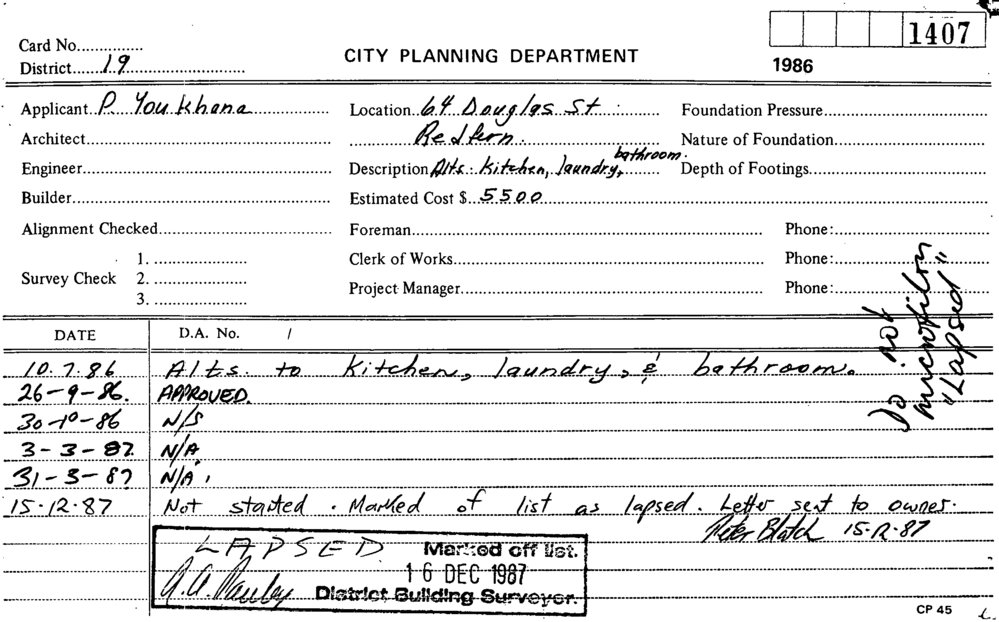 1407
Card No...............
CITY PLANNING DEPARTMENT
District 19
1986
Applicant P. Youkhana Location 64 Douglas St Foundation Pressure
Architect Redfern. Nature of Foundation
Engineer Description Alts. Kitchen, laundry, bathroom. Depth of Footings
Builder Estimated Cost $ 5500
Alignment Checked Foreman Phone:
1. Clerk of Works Phone:
Survey Check 2.
3. Project Manager Phone:
Do not
microfilm
"Lapsed"
DATE D.A. No. /
10.7.86 Alts. to Kitchen, laundry, & bathroom.
26-9-86. APPROVED.
30-10-86 N/S
3-3-87 N/A
31-3-87 N/A.
15.12.87 Not started. Marked of list as lapsed. Letter sent to owner.
Peter Blatch 15-12-87
LAPSED Marked off list.
16 DEC 1987
District Building Surveyor.
CP 45